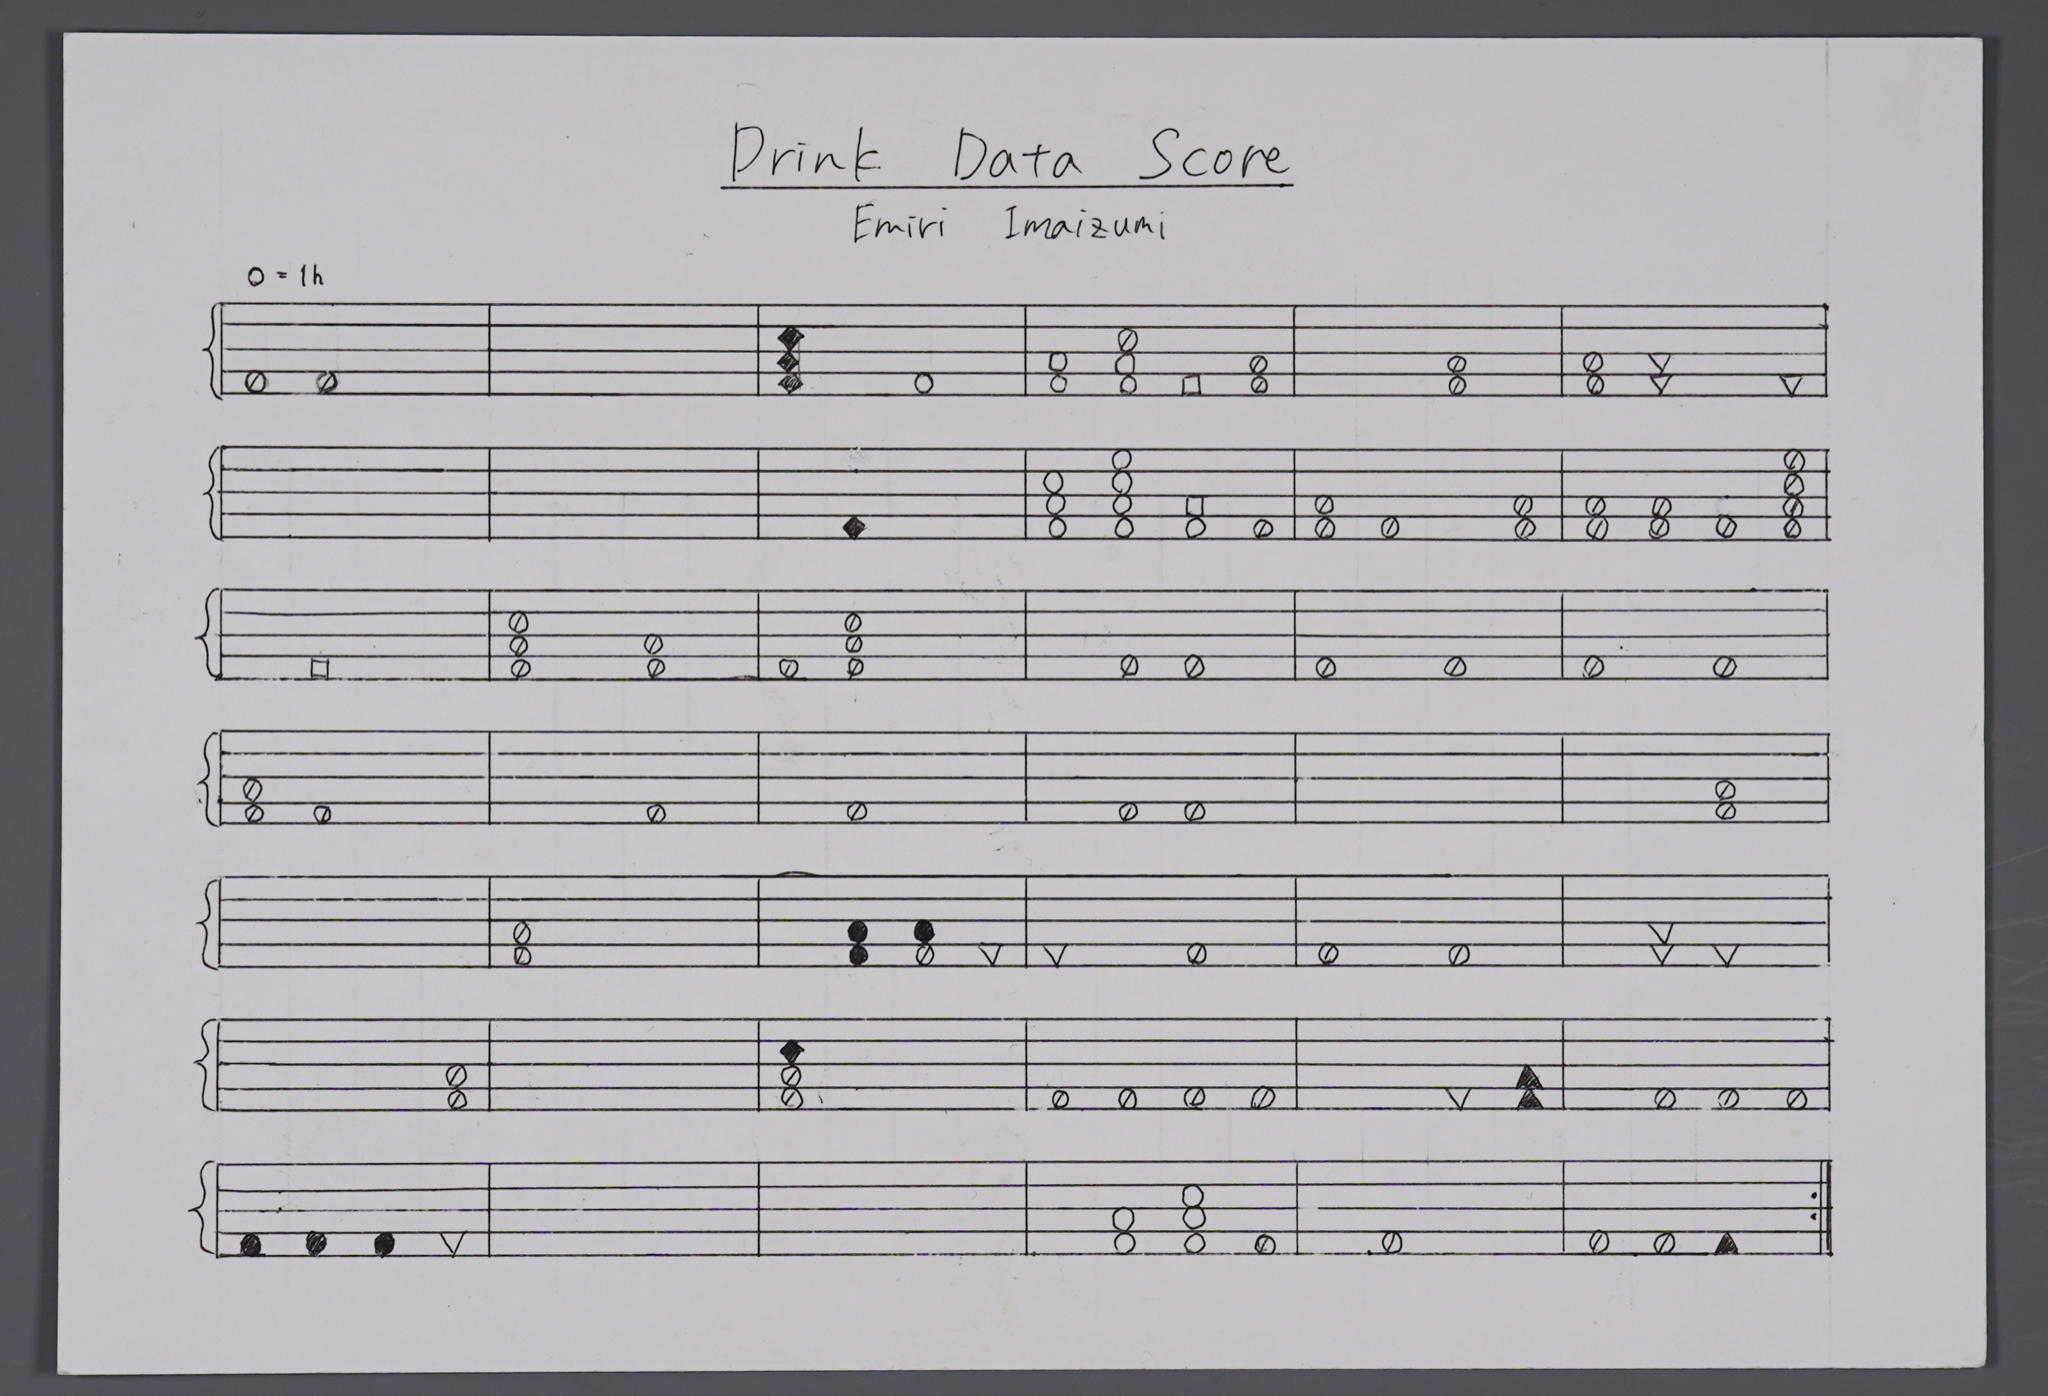 Drink Data Score
Emiri Imaizumi
O = 1h